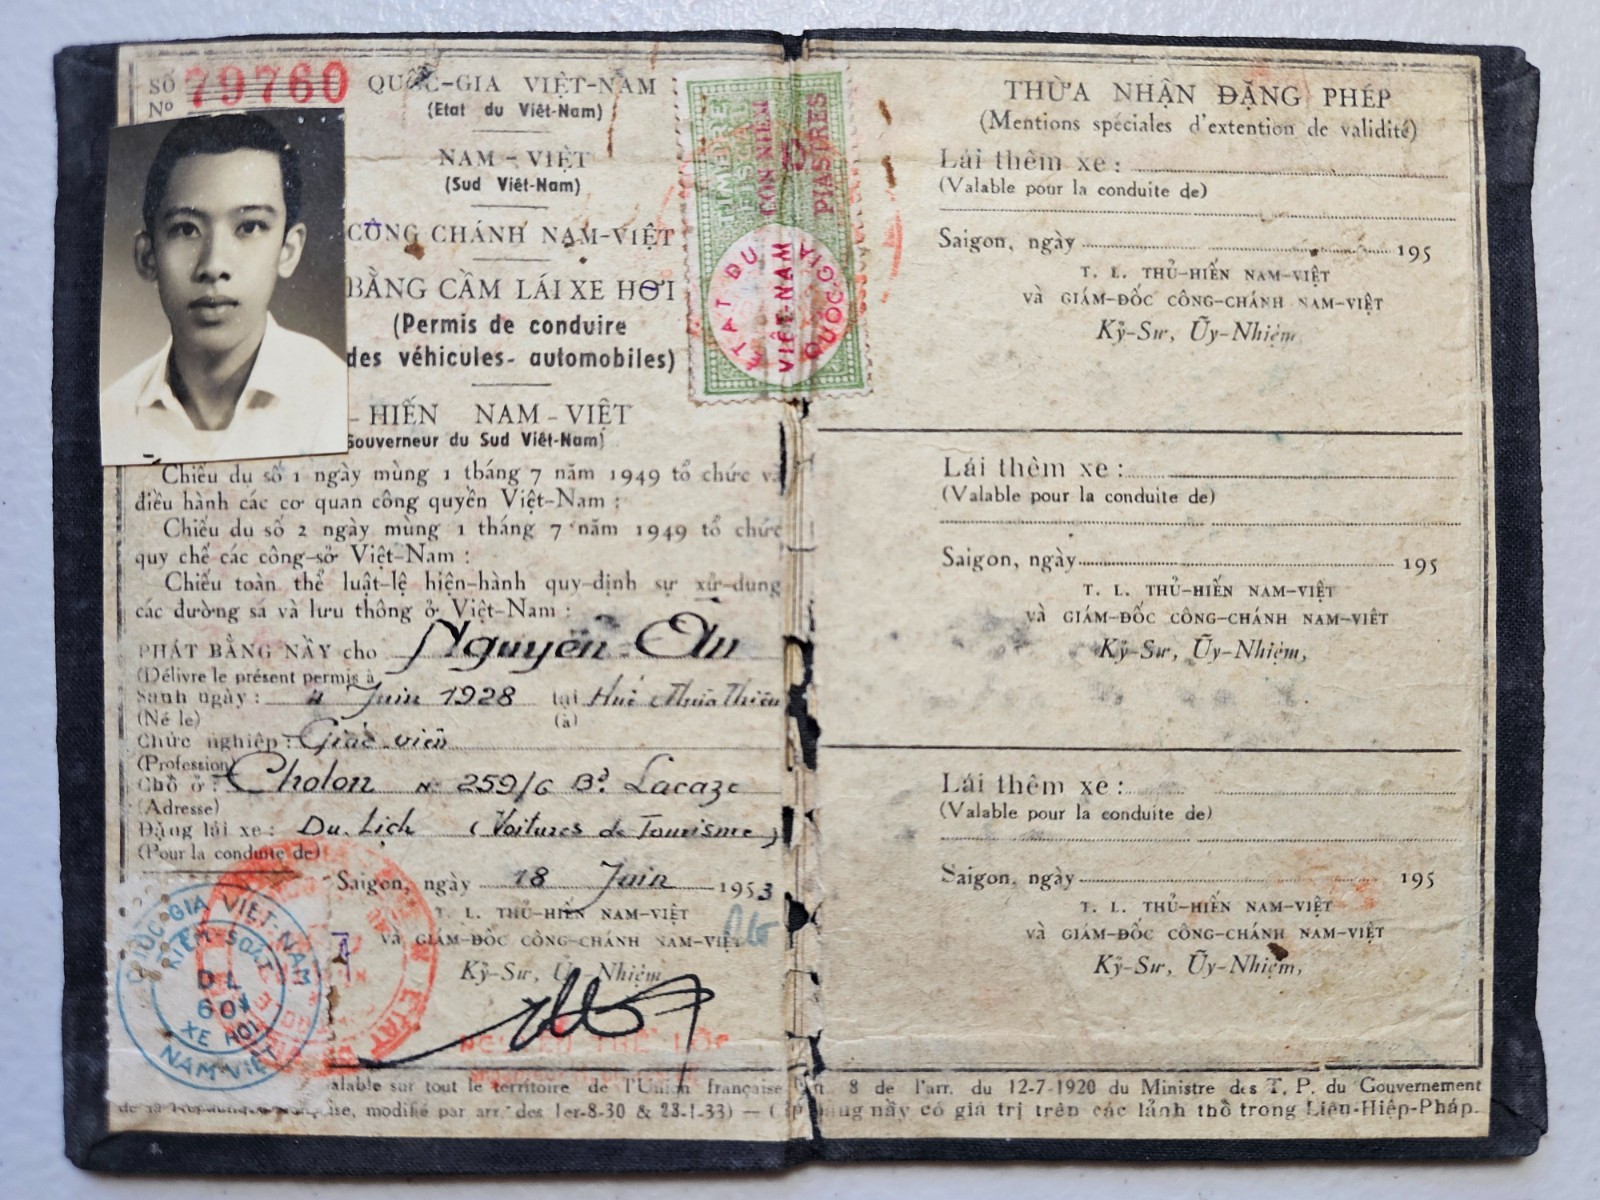 SỐ 79760
Nº
QUỐC-GIA VIỆT-NAM
(Etat du Viêt-Nam)
NAM-VIỆT
(Sud Viêt-Nam)
CÔNG CHÁNH NAM-VIỆT
BẰNG CẦM LÁI XE HƠI
(Permis de conduire
des véhicules-automobiles)
- HIẾN NAM-VIỆT
Gouverneur du Sud Viêt-Nam)
TIMBRE FISCAL
CON NIÊM
PIASTRES
ETAT DU
VIỆT-NAM
QUỐC-GIA
Chiếu dụ số 1 ngày mùng 1 tháng 7 năm 1949 tổ chức và
điều hành các cơ quan công quyền Việt-Nam ;
Chiếu dụ số 2 ngày mùng 1 tháng 7 năm 1949 tổ chức
quy chế các công-sở Việt-Nam :
Chiếu toàn thể luật-lệ hiện-hành quy-định sự xử-dụng
các đường sá và lưu thông ở Việt-Nam :
PHÁT BẰNG NẦY cho Nguyễn-Ân
(Délivre le présent permis à
Sanh ngày : 4 Juin 1928 tại Huế Thừa Thiên
(Né le) (à)
Chức nghiệp : Giáo viên
(Profession)
Chỗ ở : Cholon Nº 259/6 Bd. Lacaze
(Adresse)
Đặng lái xe : Du Lịch (Voitures de Tourisme)
(Pour la conduite de)
Saigon, ngày 18 Juin 1953
T. L. THỦ-HIẾN NAM-VIỆT
và GIÁM-ĐỐC CÔNG-CHÁNH NAM-VIỆT
Kỹ-Sư, Ủy Nhiệm
QUỐC-GIA VIỆT-NAM
KIỂM-SOÁT
DL
601
XE HƠI
NAM-VIỆT
alable sur tout le territoire de l'Union française
de la République française, modifié par arr. des 1er-8-30 & 23-1-33) — (
THỪA NHẬN ĐẶNG PHÉP
(Mentions spéciales d'extention de validité)
Lái thêm xe :
(Valable pour la conduite de)
Saigon, ngày 195
T. L. THỦ-HIẾN NAM-VIỆT
và GIÁM-ĐỐC CÔNG-CHÁNH NAM-VIỆT
Kỹ-Sư, Ủy-Nhiệm,
Lái thêm xe :
(Valable pour la conduite de)
Saigon, ngày 195
T. L. THỦ-HIẾN NAM-VIỆT
và GIÁM-ĐỐC CÔNG-CHÁNH NAM-VIỆT
Kỹ-Sư, Ủy-Nhiệm,
Lái thêm xe :
(Valable pour la conduite de)
Saigon, ngày 195
T. L. THỦ-HIẾN NAM-VIỆT
và GIÁM-ĐỐC CÔNG-CHÁNH NAM-VIỆT
Kỹ-Sư, Ủy-Nhiệm,
8 de l'arr. du 12-7-1920 du Ministre des T. P. du Gouvernement
nầy có giá trị trên các lảnh thổ trong Liên-Hiệp-Pháp.